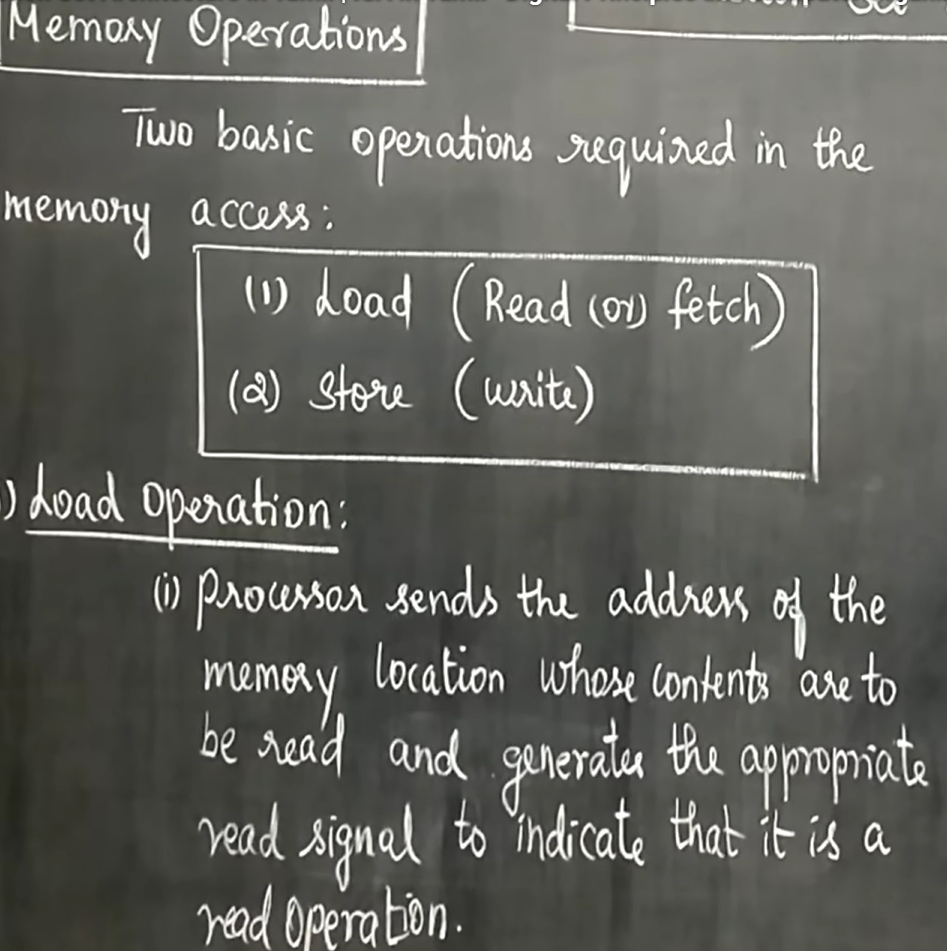 Memory Operations
Two basic operations required in the
memory access:
(1) Load (Read (or) fetch)
(2) Store (write)
) Load Operation:
(i) Processor sends the address of the
memory location whose contents are to
be read and generates the appropriate
read signal to indicate that it is a
read operation.